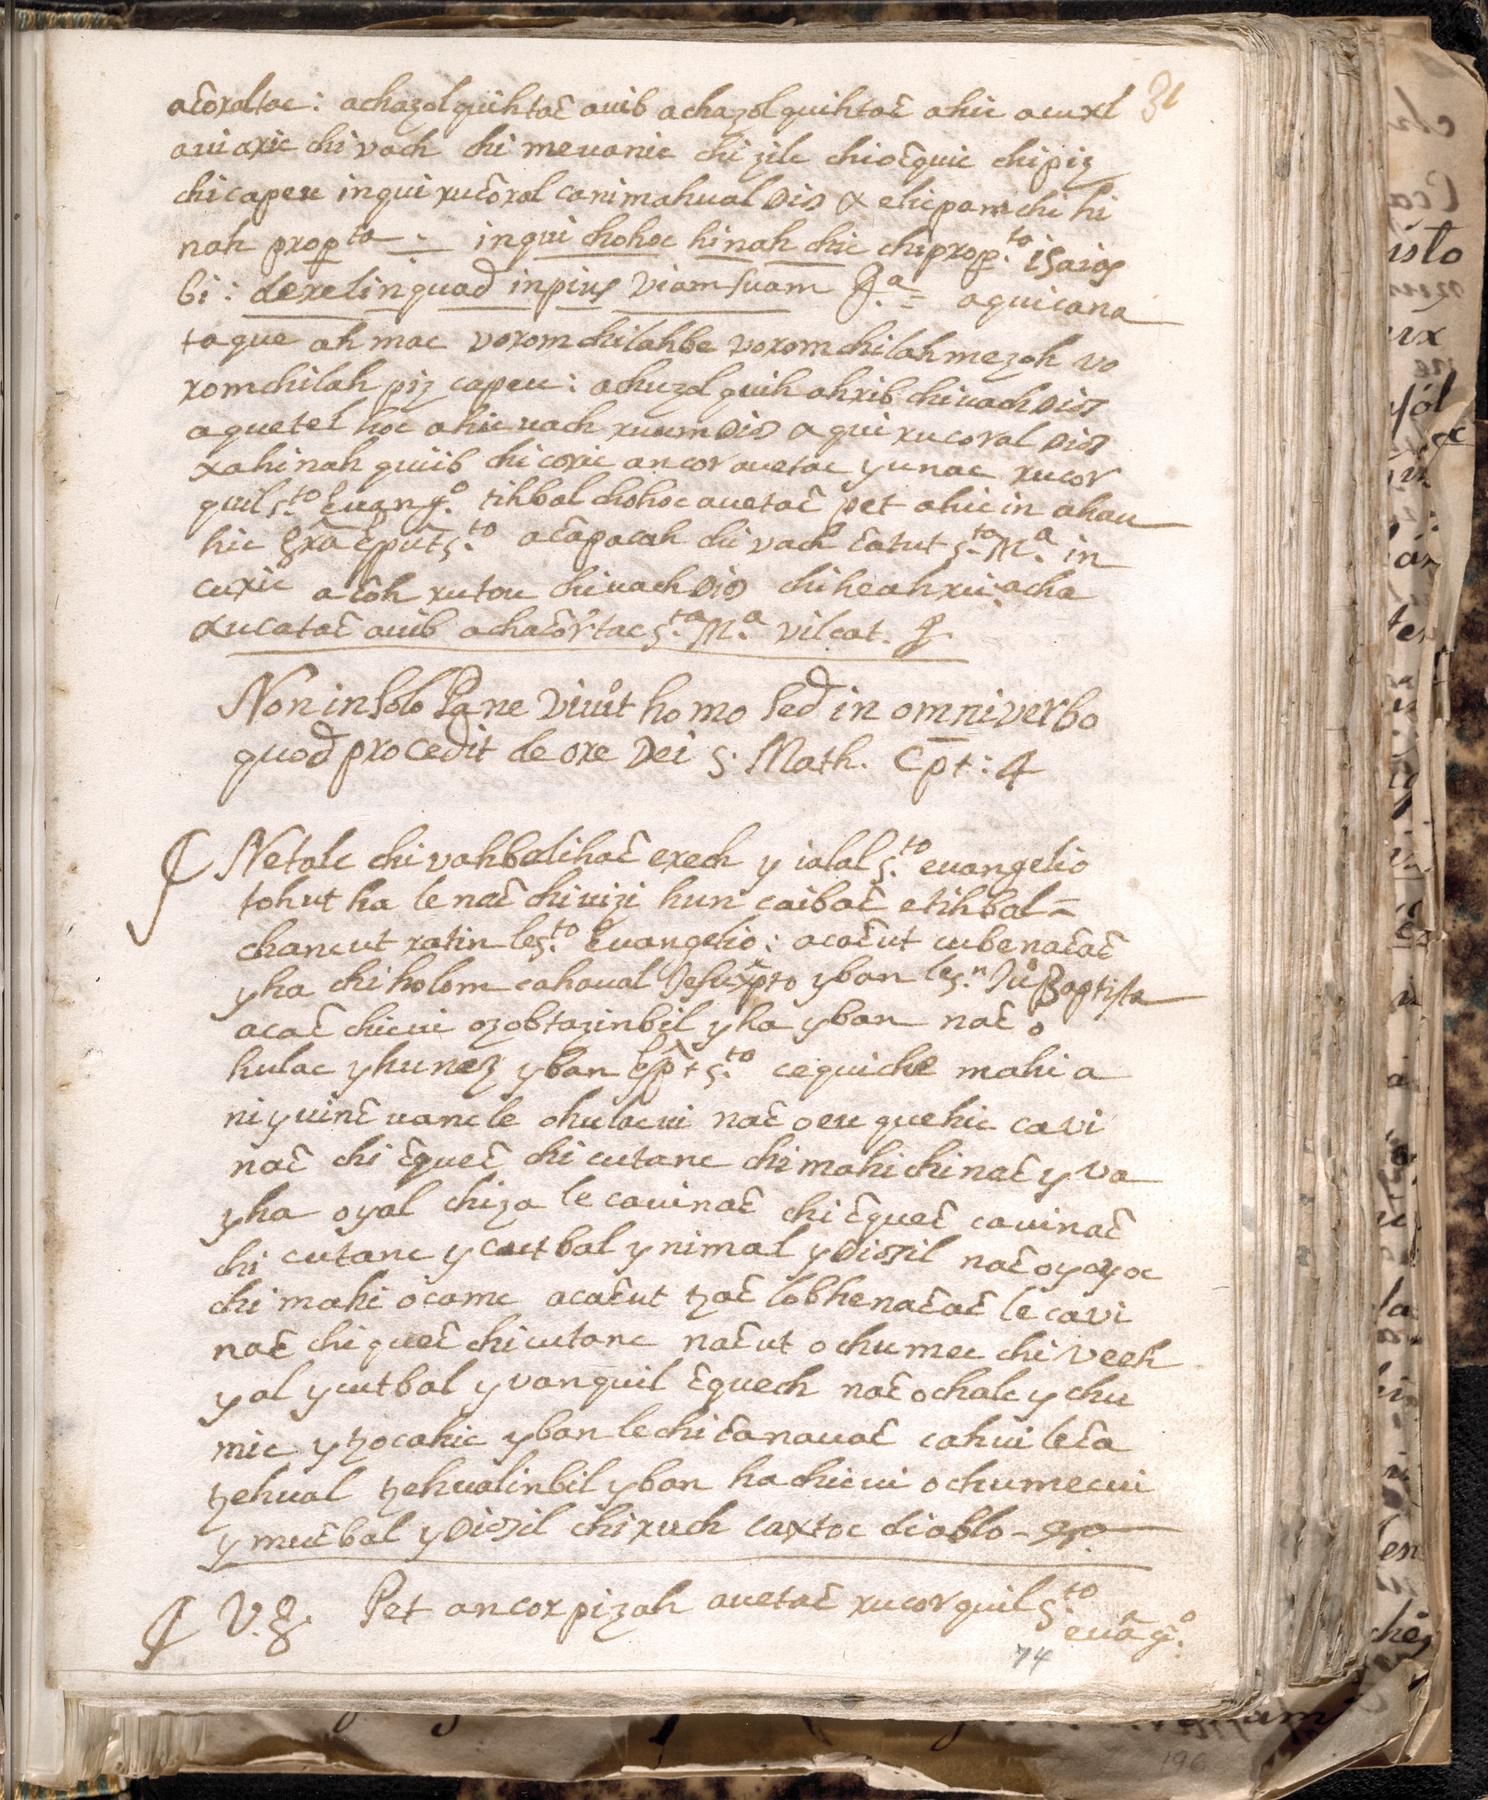 31
ac̄oraltac: achazolquihtac̄ auib achazolquihtac̄ ahic acuxl
auiaxic chi vach chi mevanic chi zilc chioc̄quic chipiz
chicapeu inqui ruc̄oral canimahual Dios & elicpam chi hi
nah prop.ta inqui chohoc hinah chic chiprop.to isaias
bi: derelinquad inpius viam suam &.a = aquicana
taque ah mac voromchilahbe voromchilah mezah vo
romchilah piz capeu: achuzolquih ahrib chivach Dios
aquetel hoc ahic vach ruum Dios aqui rucoral Dios
xahinah quiib chi coric ancor avetac yunac rucor
quil s.to Euang.o tihbal chohoc avetac̄ pet ahic in ahau
hic s.to acāpacah chi vach c̄atut s.ta M.a in
cuxic acōh rutou chivach Dios chiheahrui acha
xucatac̄ auib achac̄ortac s.ta M.a vilcat. &.
Non in solo Pane viuit homo sed in omni verbo
quod procedit de ore Dei s. Math. Cpt: 4
₵ Netalc chi vahbalihac̄ exech y ialal s.to evangelio
tohut ha le nac̄ chi vizi hun caibac̄ etihbal =
chancut ratin les.to Evangelio: acac̄ut cubenac̄ac̄
yha chi holom cahaual Jesuxpto yban les.n Juo Baptista
acac̄ chicui ozobtazinbil yha yban nac̄ o
hulac yhunez yban Espt s.to cequiche mahi a
ni yuinc̄ uancle ohulacui nac̄ oeu quehic cavi
nac̄ chi c̄quec̄ chi cutanc chi mahi chi nac̄ y va
yha oyal chiza le cavinac̄ chi c̄quec̄ cavinac̄
chi cutanc y cautbal y nimal y Diosil nac̄ oyoyoc
chi mahi ocamc acac̄ut tzac̄ lobhenac̄ac̄ le cavi
nac̄ chi quec̄ chi cutanc nac̄ut ochumec chi veeh
y al y cutbal y vanquil c̄quech nac̄ ochalc y chu
mic y tzocahic yban lechi c̄anavac̄ cahui le c̄a
tzehual tzehualinbil yban ha chicui ochumecui
y muc̄bal y Diosil chi xuch caxtoc diablo -
₵ V. &. Pet ancor pizah auetac̄ rucorquil s.to
euāg.o
74
196